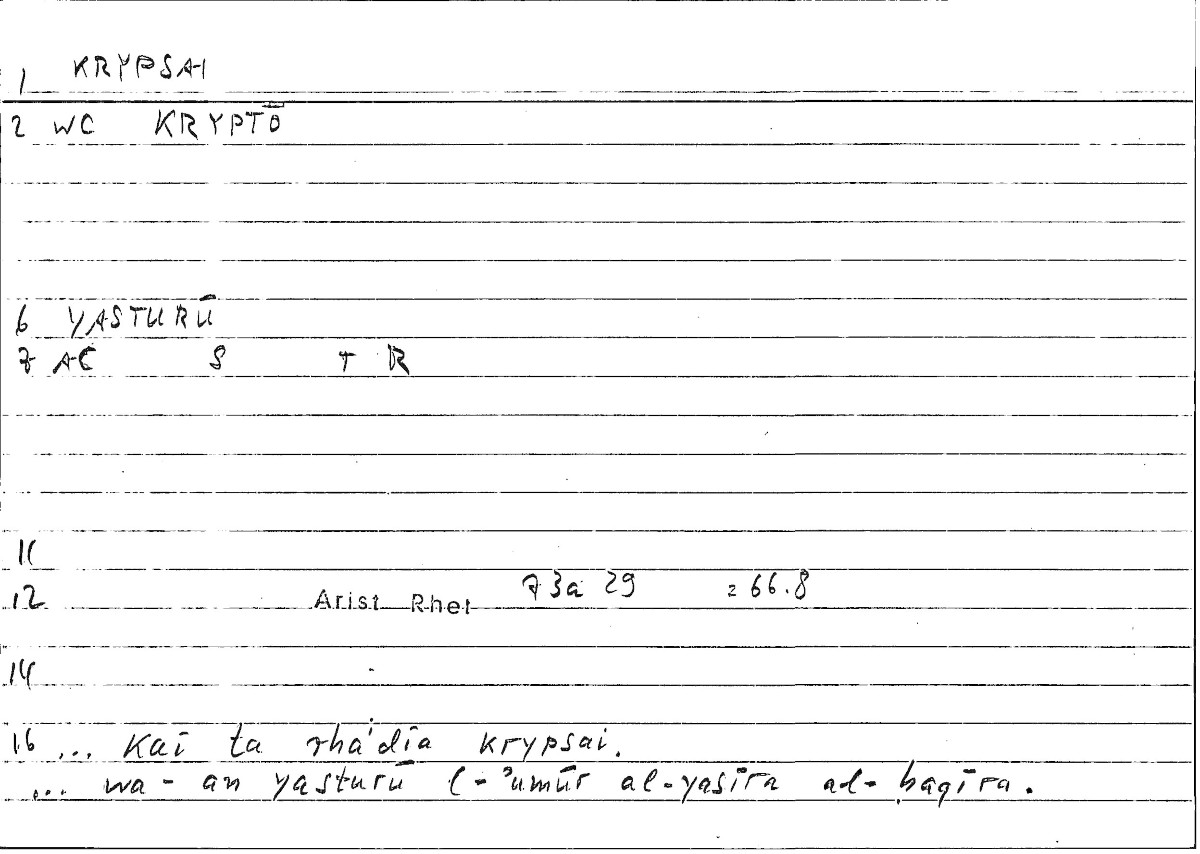 1 KRYPSAI
2 WC KRYPTŌ
6 YASTURŪ
7 AC S T R
11
12 Arist Rhet 73a 29 = 66.8
14
16 ... kai ta rhádia krypsai.
... wa-an yasturū l-ʾumūr al-yasīra al-ḥaqīra.